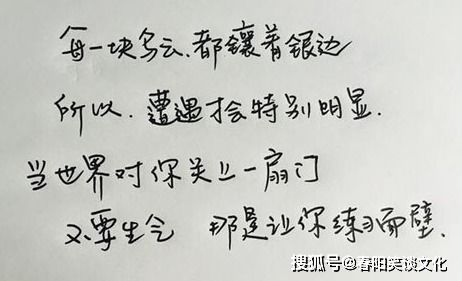 每一块乌云、都镶着银边
所以、遭遇才会特别明显.
当世界对你关上一扇门
不要生气 那是让你练习面壁.
搜狐号@春阳笑谈文化